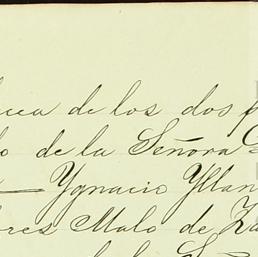 de los dos
de la Señora
Ygnacio Yllan
Malo de Za